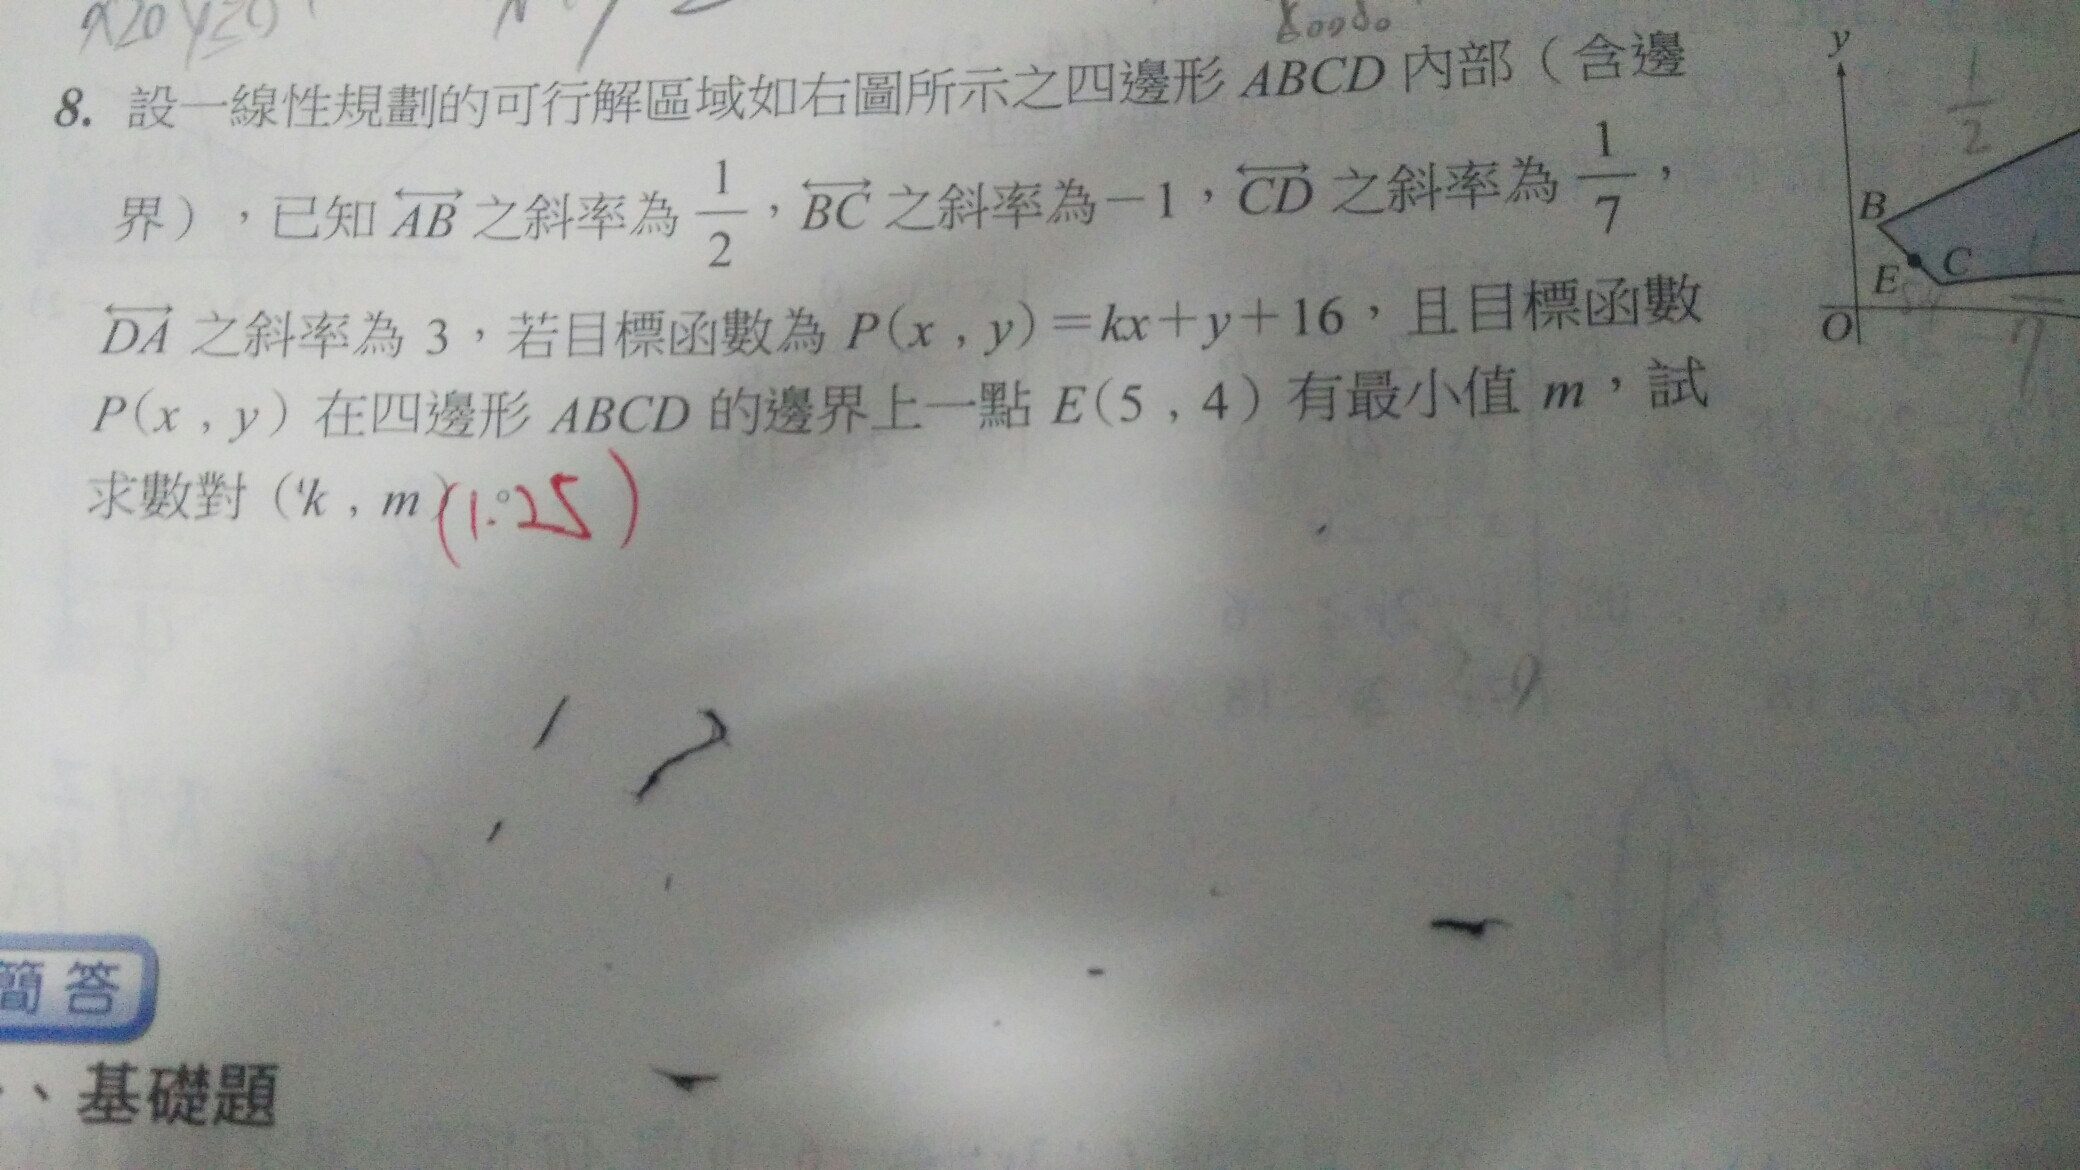 x≥0 y≥0
8. 設一線性規劃的可行解區域如右圖所示之四邊形 ABCD 內部（含邊
界），已知 AB 之斜率為 1/2，BC 之斜率為－1，CD 之斜率為 1/7，
DA 之斜率為 3，若目標函數為 P(x , y)＝kx＋y＋16，且目標函數
P(x , y) 在四邊形 ABCD 的邊界上一點 E(5 , 4) 有最小值 m，試
求數對 (k , m)
(1.25)
y
1/2
B
E
C
1/7
O
簡答
、基礎題